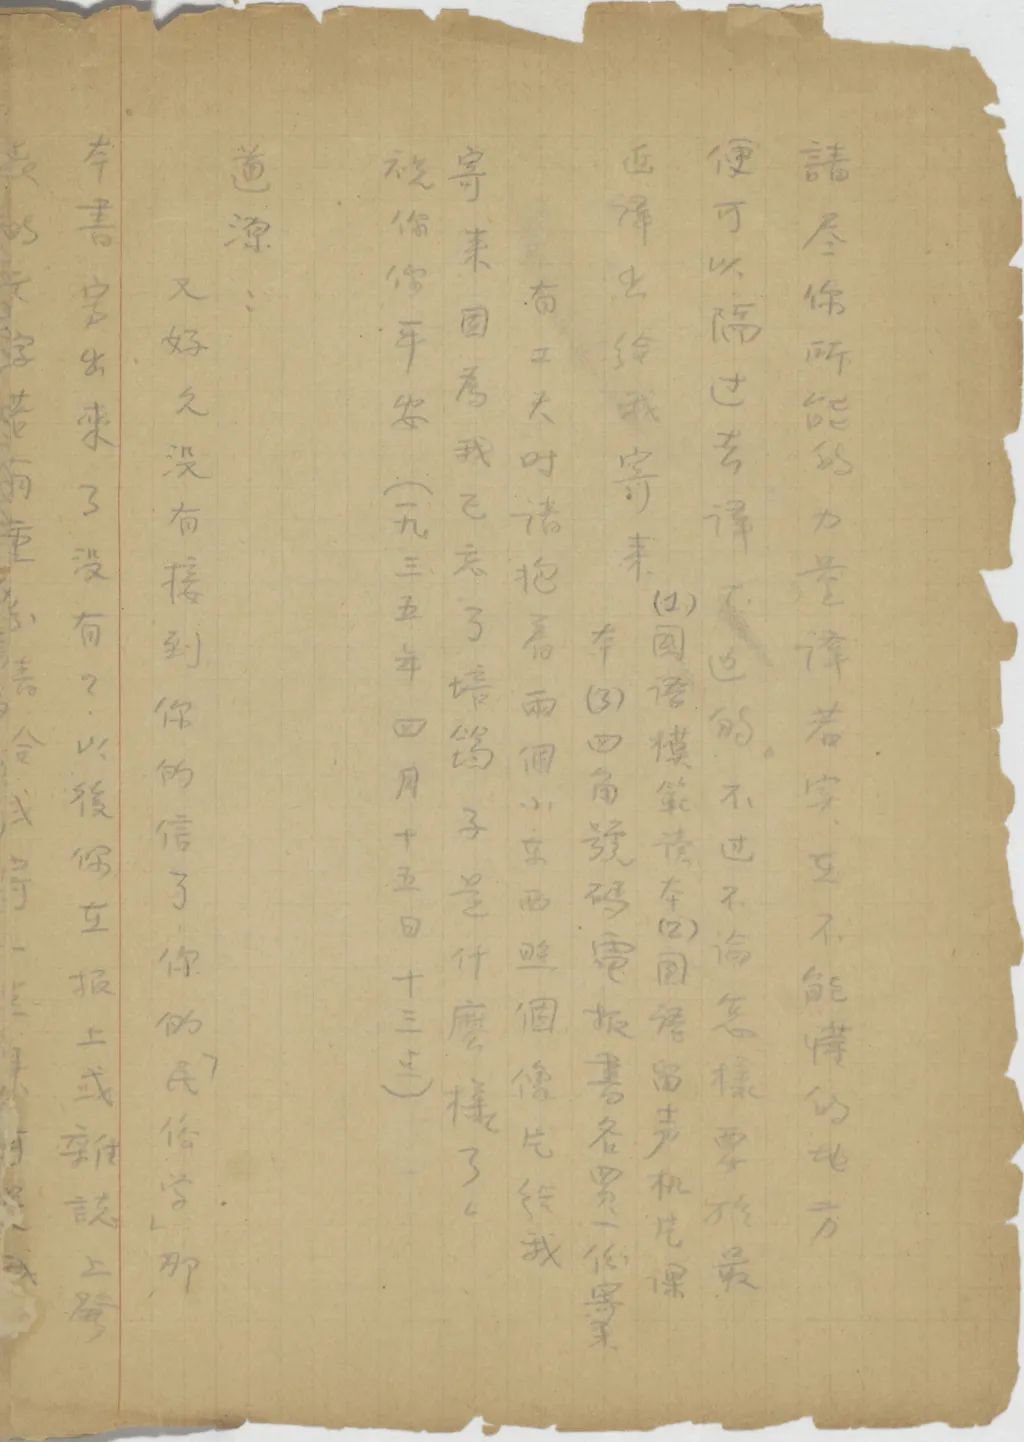 請尽你所能的力量譯若实在不能懂的地方
便可以隔过去譯 过的不过不論怎樣要於最
近譯出給我寄来
(1)國語模範读本(2)國语留声机片课
本(3)四角號碼電报書各買一份寄来
有工夫时请抱着兩個小东西照個像片给我
寄来因為我已忘了培 子是什麽樣了。
祝你 平安(一九三五年四月十五日十三点)
道源:
又好久没有接到你的信了,你的「民俗学」那
本書穷出來了没有?以後你在报上或雜誌上發
表的文字若有 些